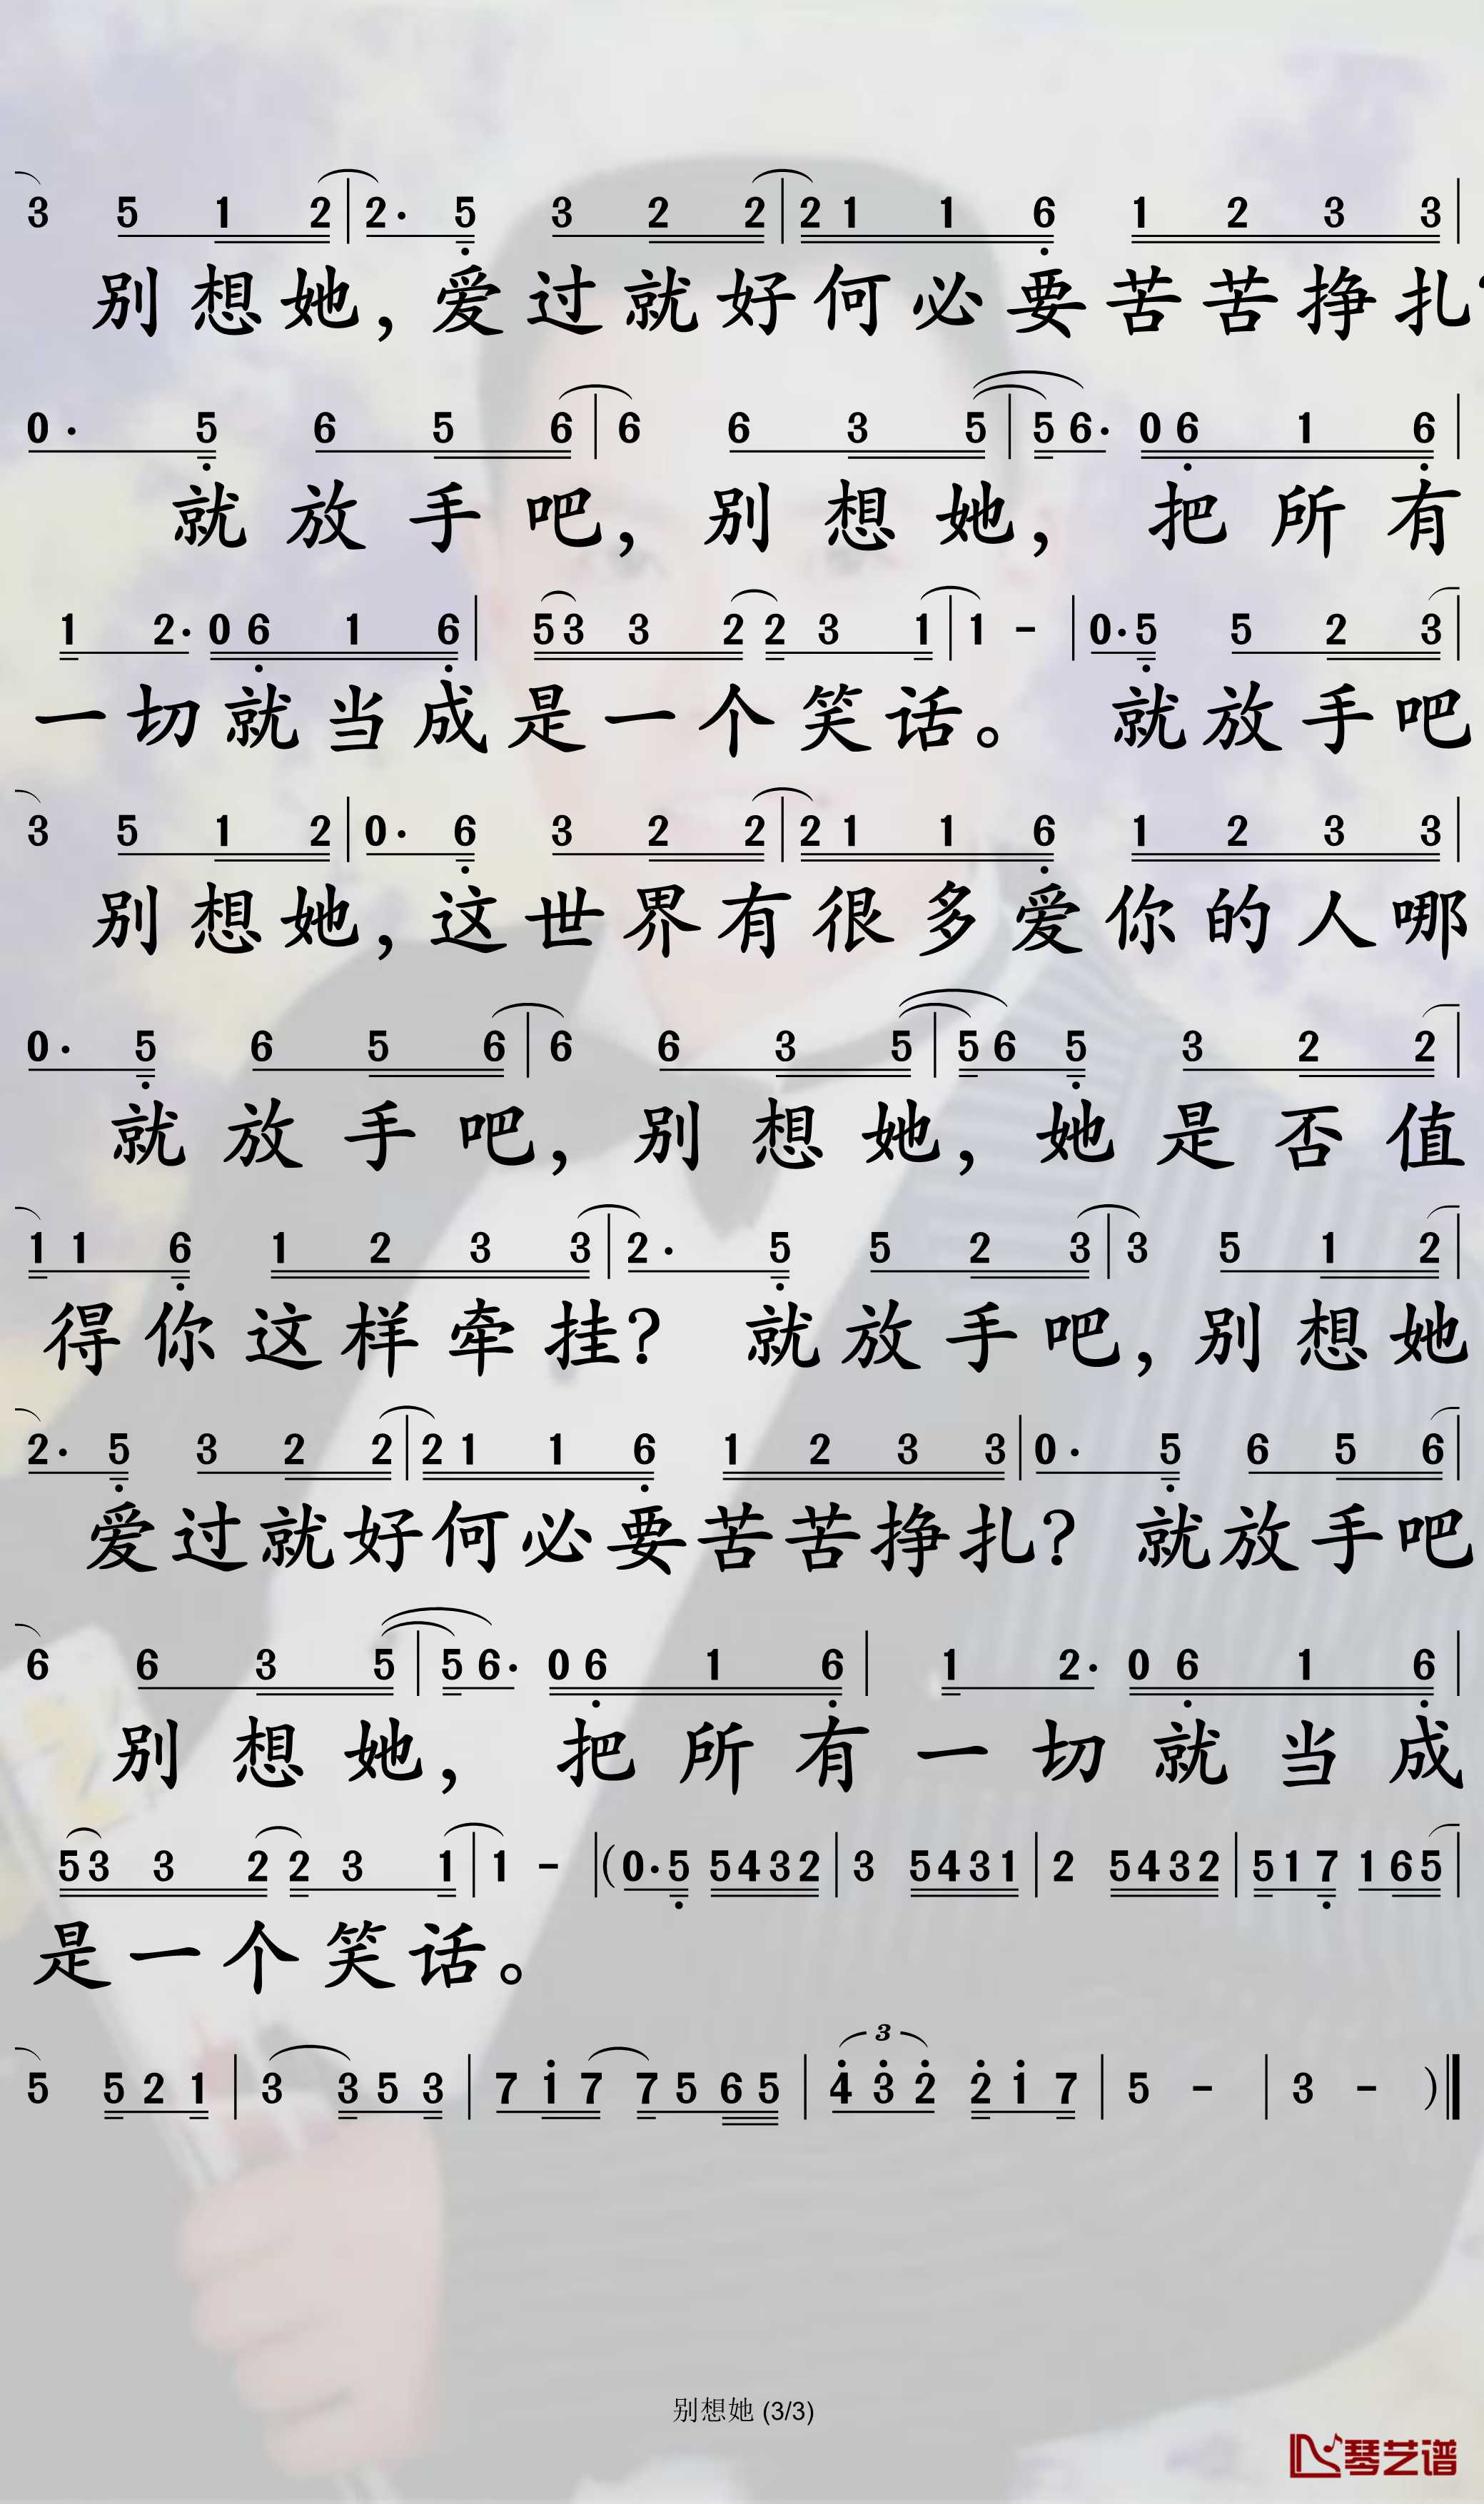 3 5 1 2 | 2· 5 3 2 2 | 2 1 1 6 1 2 3 3 |
别想她，爱过就好何必要苦苦挣扎
0· 5 6 5 6 | 6 6 3 5 | 5 6· 0 6 1 6 |
就放手吧，别想她，把所有
1 2· 0 6 1 6 | 5 3 3 2 2 3 1 | 1 - | 0· 5 5 2 3 |
一切就当成是一个笑话。就放手吧
3 5 1 2 | 0· 6 3 2 2 | 2 1 1 6 1 2 3 3 |
别想她，这世界有很多爱你的人哪
0· 5 6 5 6 | 6 6 3 5 | 5 6 5 3 2 2 |
就放手吧，别想她，她是否值
1 1 6 1 2 3 3 | 2· 5 5 2 3 | 3 5 1 2 |
得你这样牵挂？就放手吧，别想她
2· 5 3 2 2 | 2 1 1 6 1 2 3 3 | 0· 5 6 5 6 |
爱过就好何必要苦苦挣扎？就放手吧
6 6 3 5 | 5 6· 0 6 1 6 | 1 2· 0 6 1 6 |
别想她，把所有一切就当成
5 3 3 2 2 3 1 | 1 - | (0· 5 5 4 3 2 | 3 5 4 3 1 | 2 5 4 3 2 | 5 1 7 1 6 5 |
是一个笑话。
3
5 5 2 1 | 3 3 5 3 | 7 1 7 7 5 6 5 | 4 3 2 2 1 7 | 5 - | 3 - )
别想她 (3/3)
琴艺谱